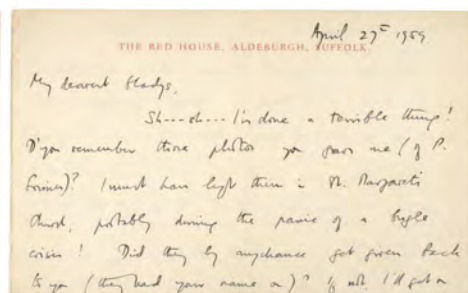 April 27th 1959.
THE RED HOUSE, ALDEBURGH, SUFFOLK.
My dearest Gladys,
Sh---sh--- I've done a terrible thing!
D'you remember those photos you gave me (of P.
Grimes)? I must have left them in St. Margaret's
Church, probably during the panic of a bugle
crisis! Did they by anychance get given back
to you (they had your name on)? If not, I'll get on